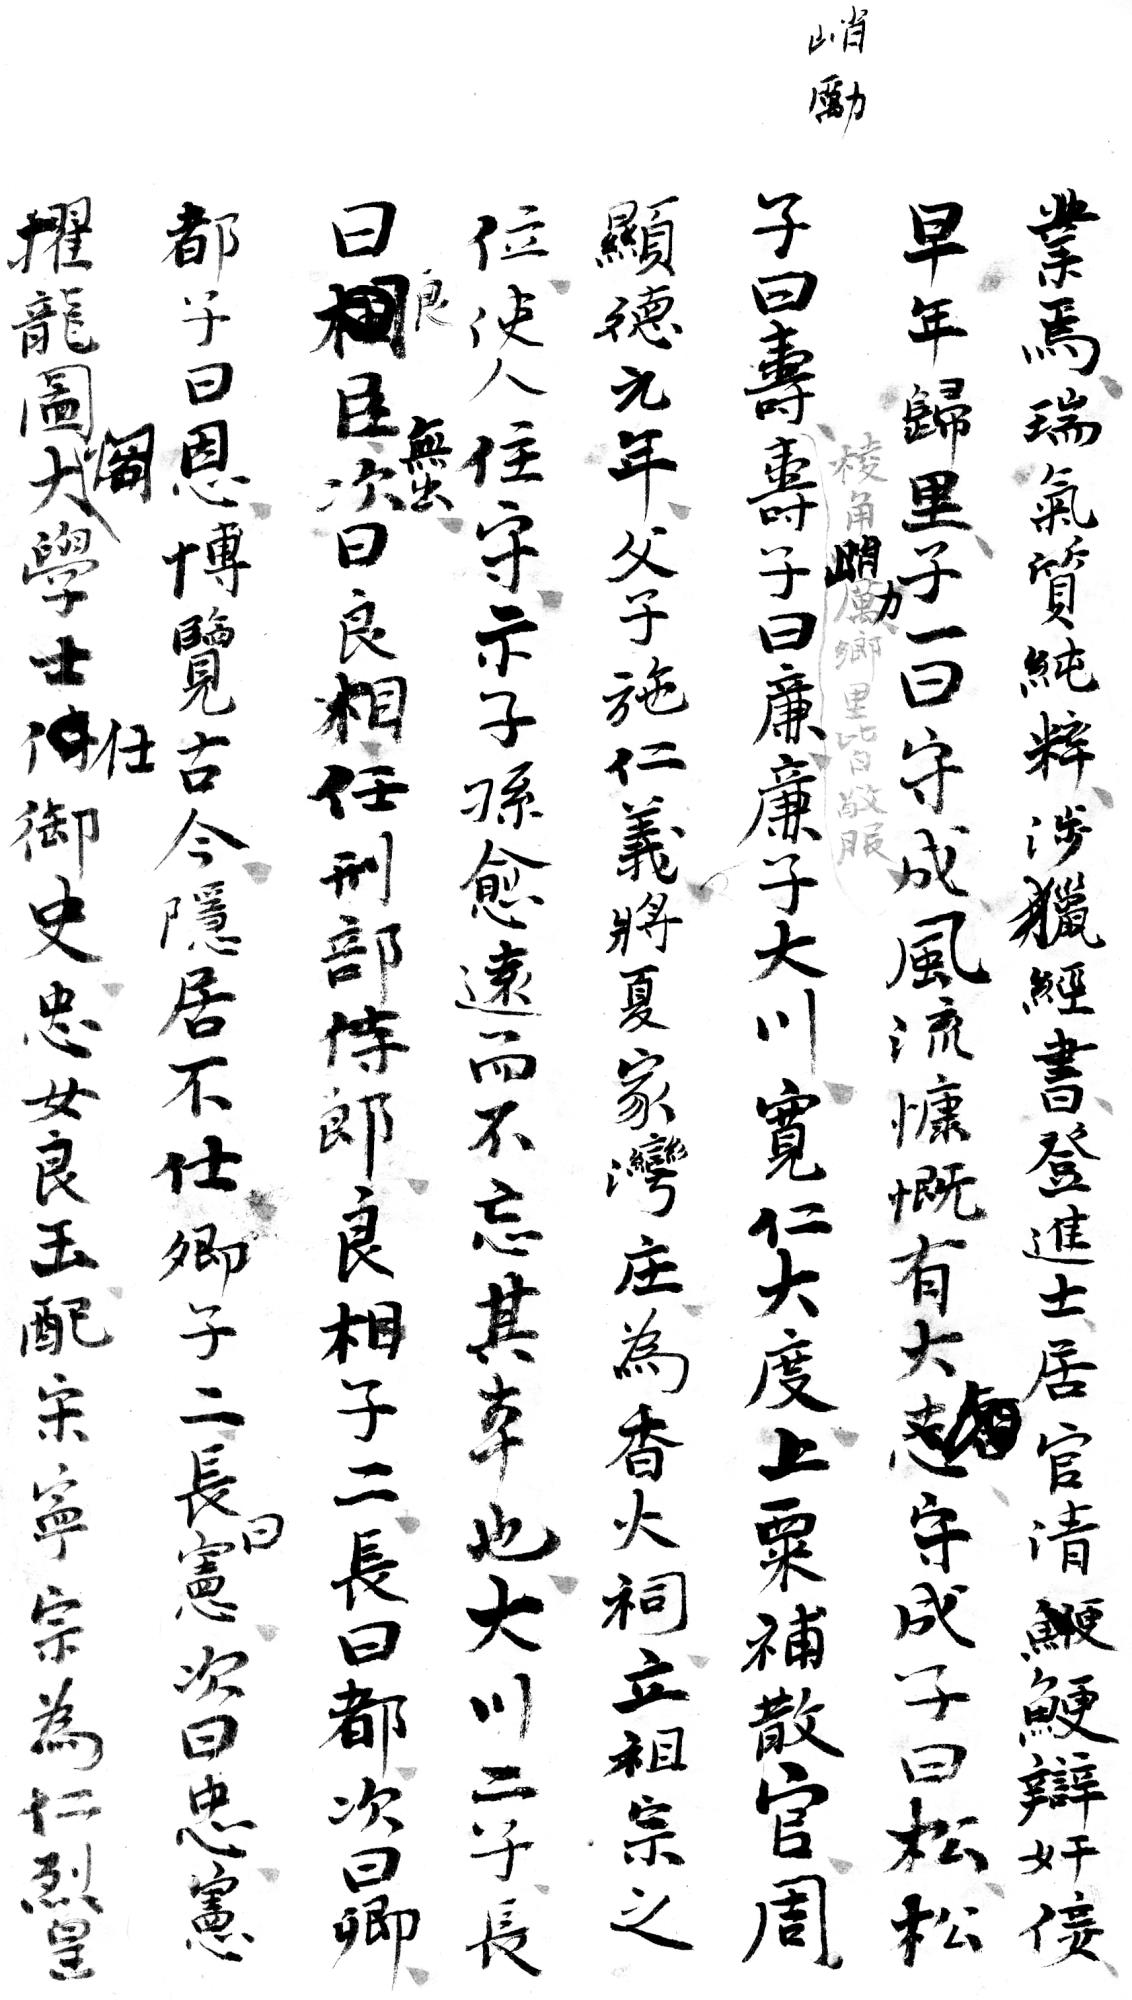 峭勵
業焉瑞氣質純粹涉獵經書登進士居官清鯁鯁辯奸佞
早年歸里子一曰守成風流慷慨有大志守成子曰松松
稜角峭厲鄉里皆敬服
子曰壽壽子曰廉廉子大川寬仁大度上粟補散官周
顯德元年父子施仁義將夏家灣庄為香火祠立祖宗之
位使人住守示子孫愈遠而不忘其本也大川二子長
曰良臣無出次曰良相任刑部侍郎良相子二長曰都次曰卿
都子曰恩博覽古今隱居不仕卿子二長曰憲次曰忠憲
擢龍圖閣大學士仕御史忠女良玉配宋寧宗為仁烈皇